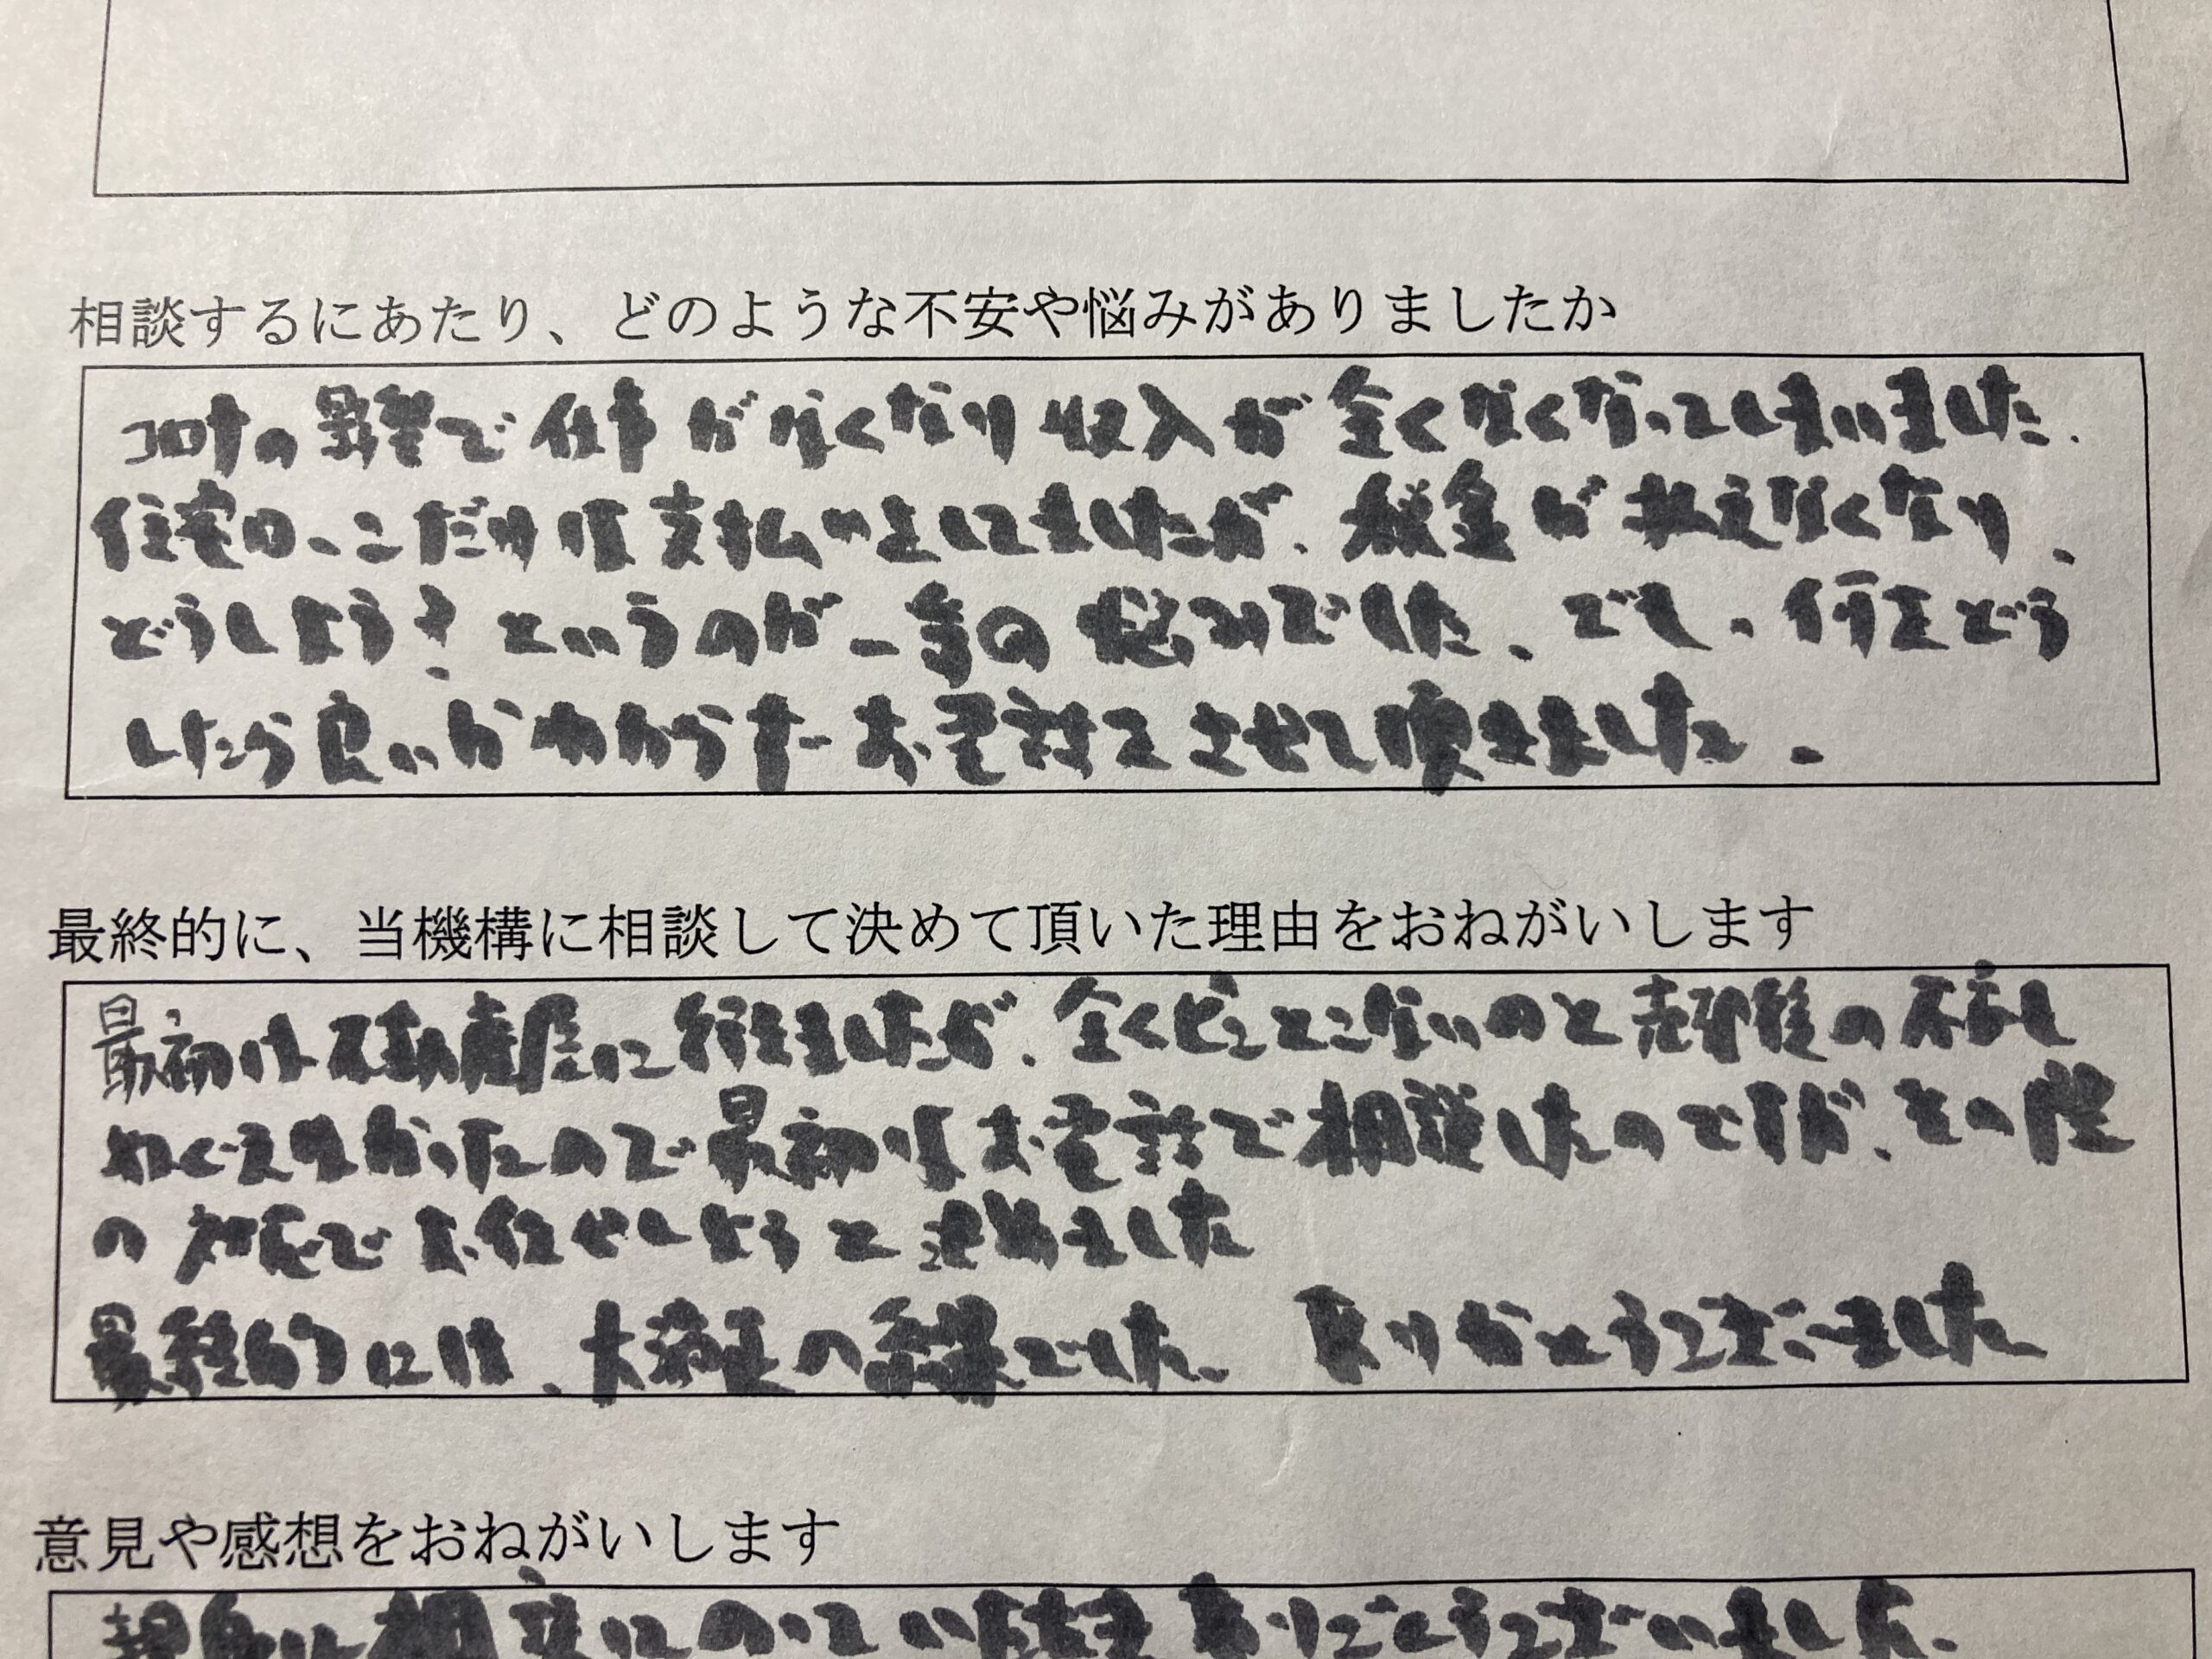 相談するにあたり、どのような不安や悩みがありましたか
コロナの影響で仕事がなくなり収入が全くなくなってしまいました.
住宅ローンだけは支払いをしてましたが、税金が払えなくなり、
どうしよう?というのが一番の悩みでした。でも、何をどう
したら良いかわからずお電話をさせて頂きました。
最終的に、当機構に相談して決めて頂いた理由をおねがいします
最初は不動産屋に行きましたが、全くピンとこないのと売却後の不安も
ぬぐえなかったので最初はお電話で相談したのですが、その際
の対応でお任せしようと決めました
最終的には、大満足の結果でした。ありがとうございました
意見や感想をおねがいします
親身に相談にのっていただき ありがとうございました。